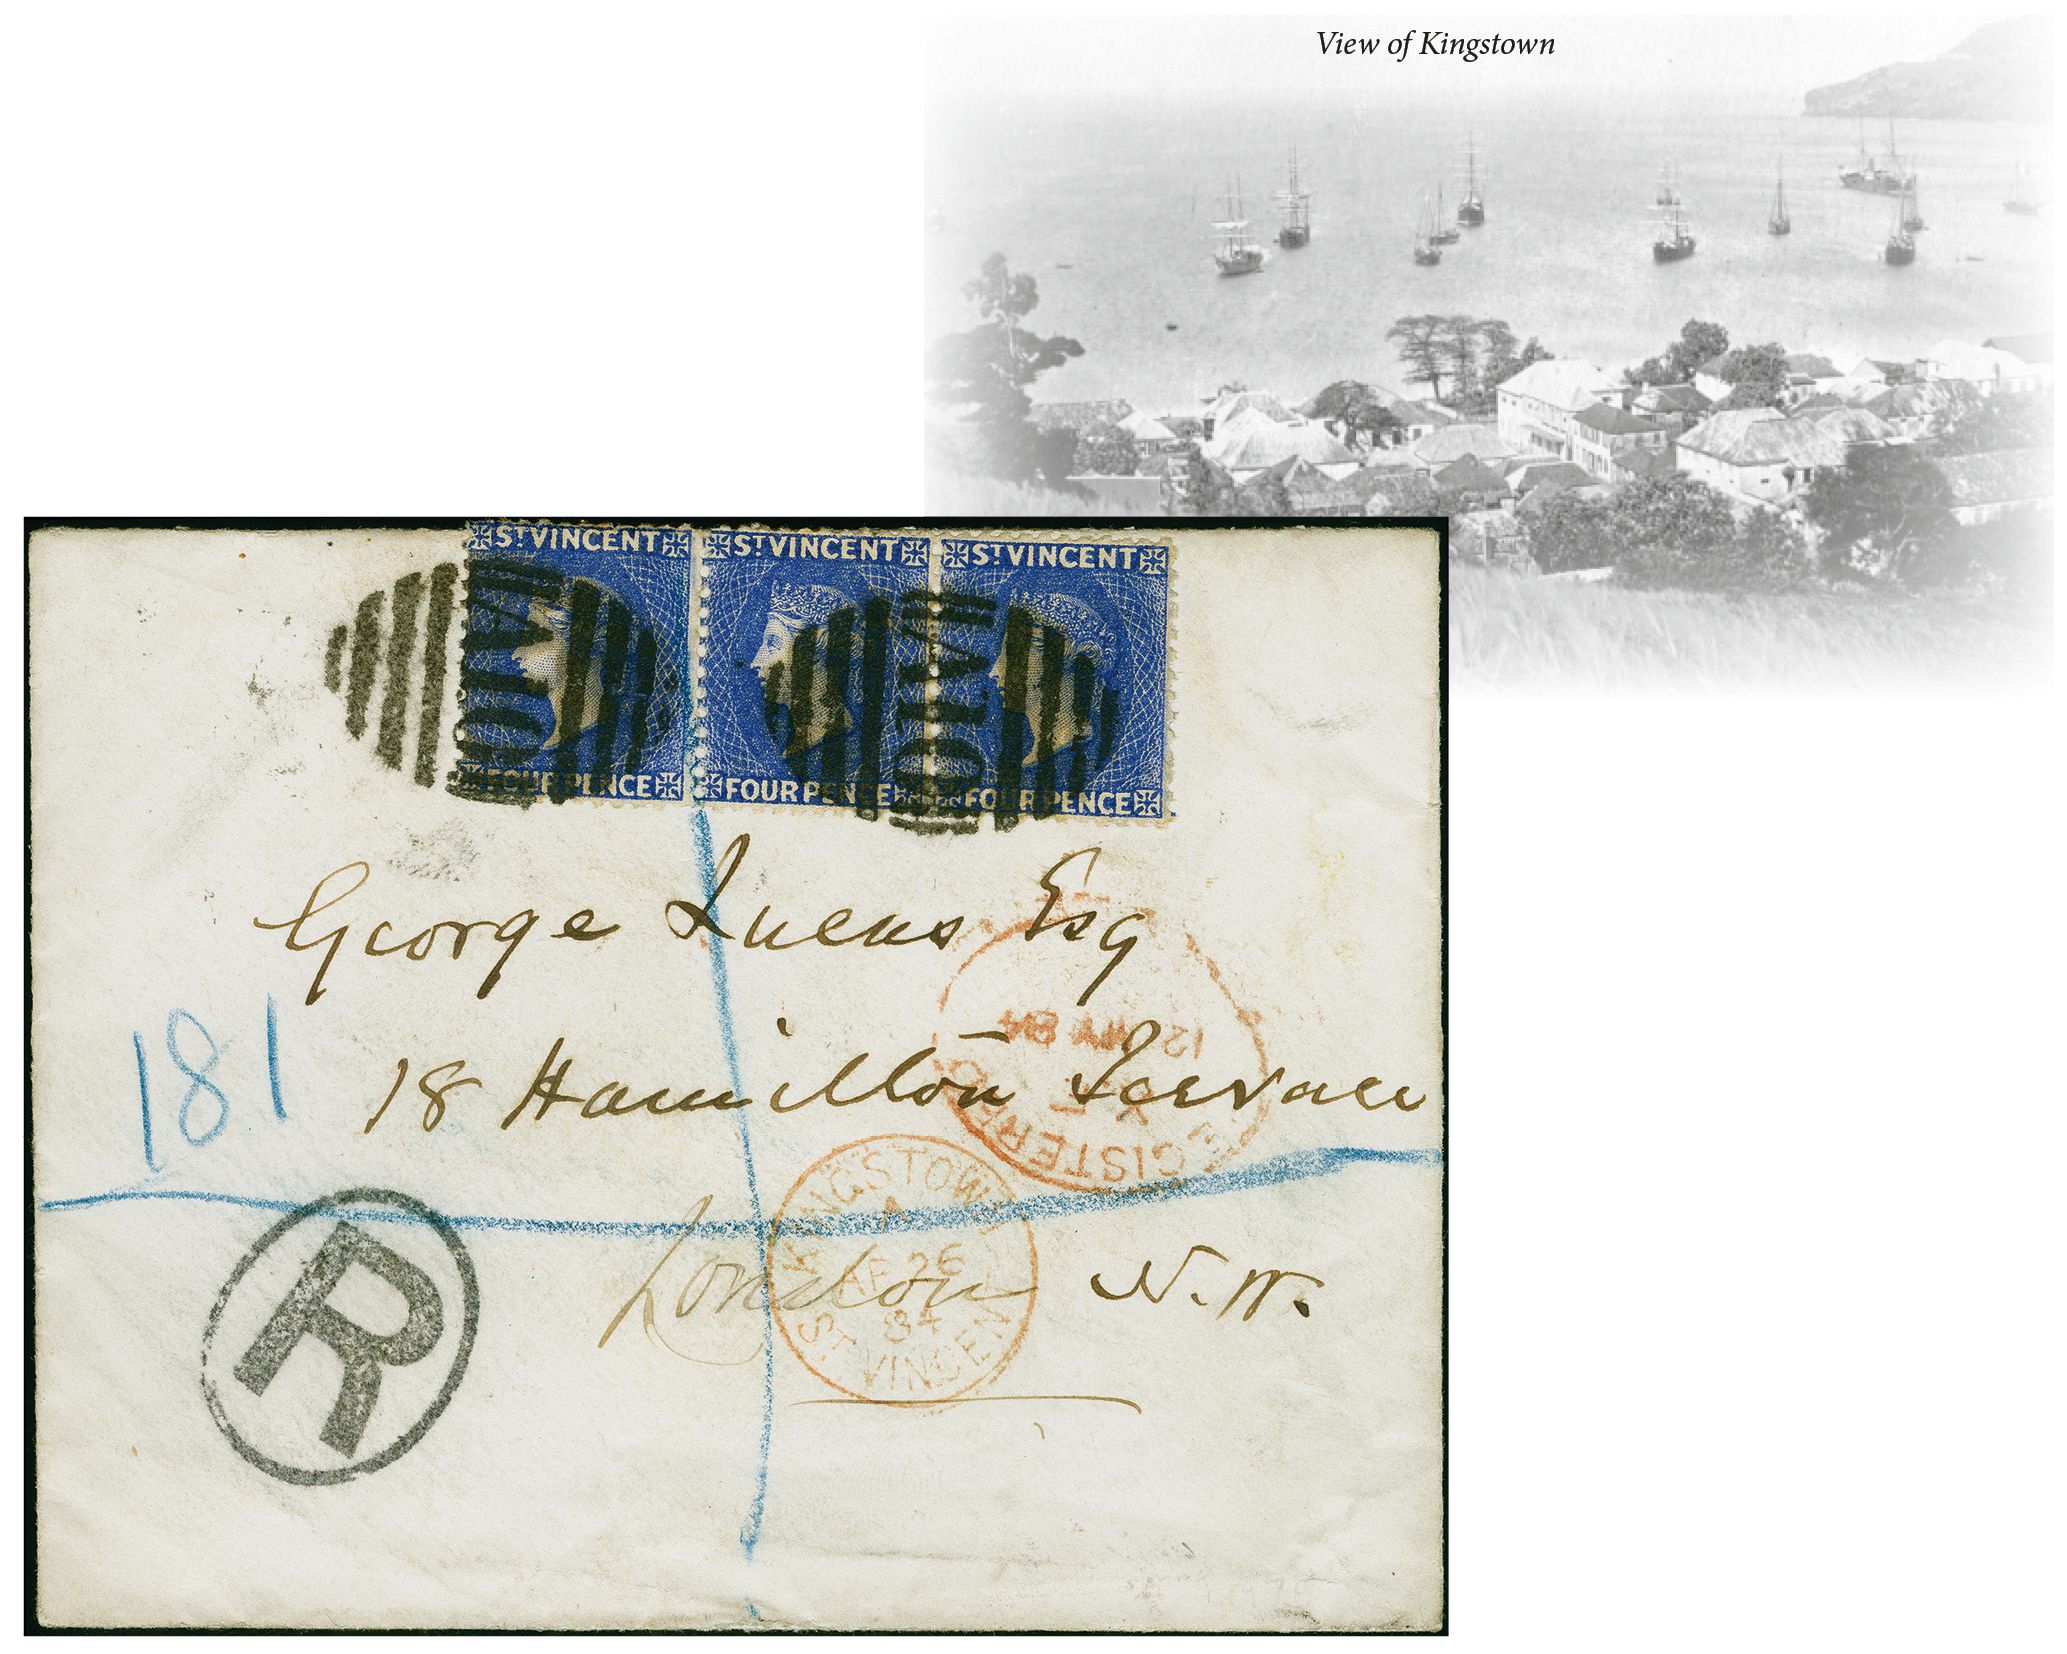 View of Kingstown
ST VINCENT ST VINCENT ST VINCENT
A10 A10
FOUR PENCE FOUR PENCE FOUR PENCE
George Lucas Esq
12 MY 84
REGISTERED
181
18 Hamilton Terrace
KINGSTOWN
A
AP 26
84
ST VINCENT
London N.W.
R